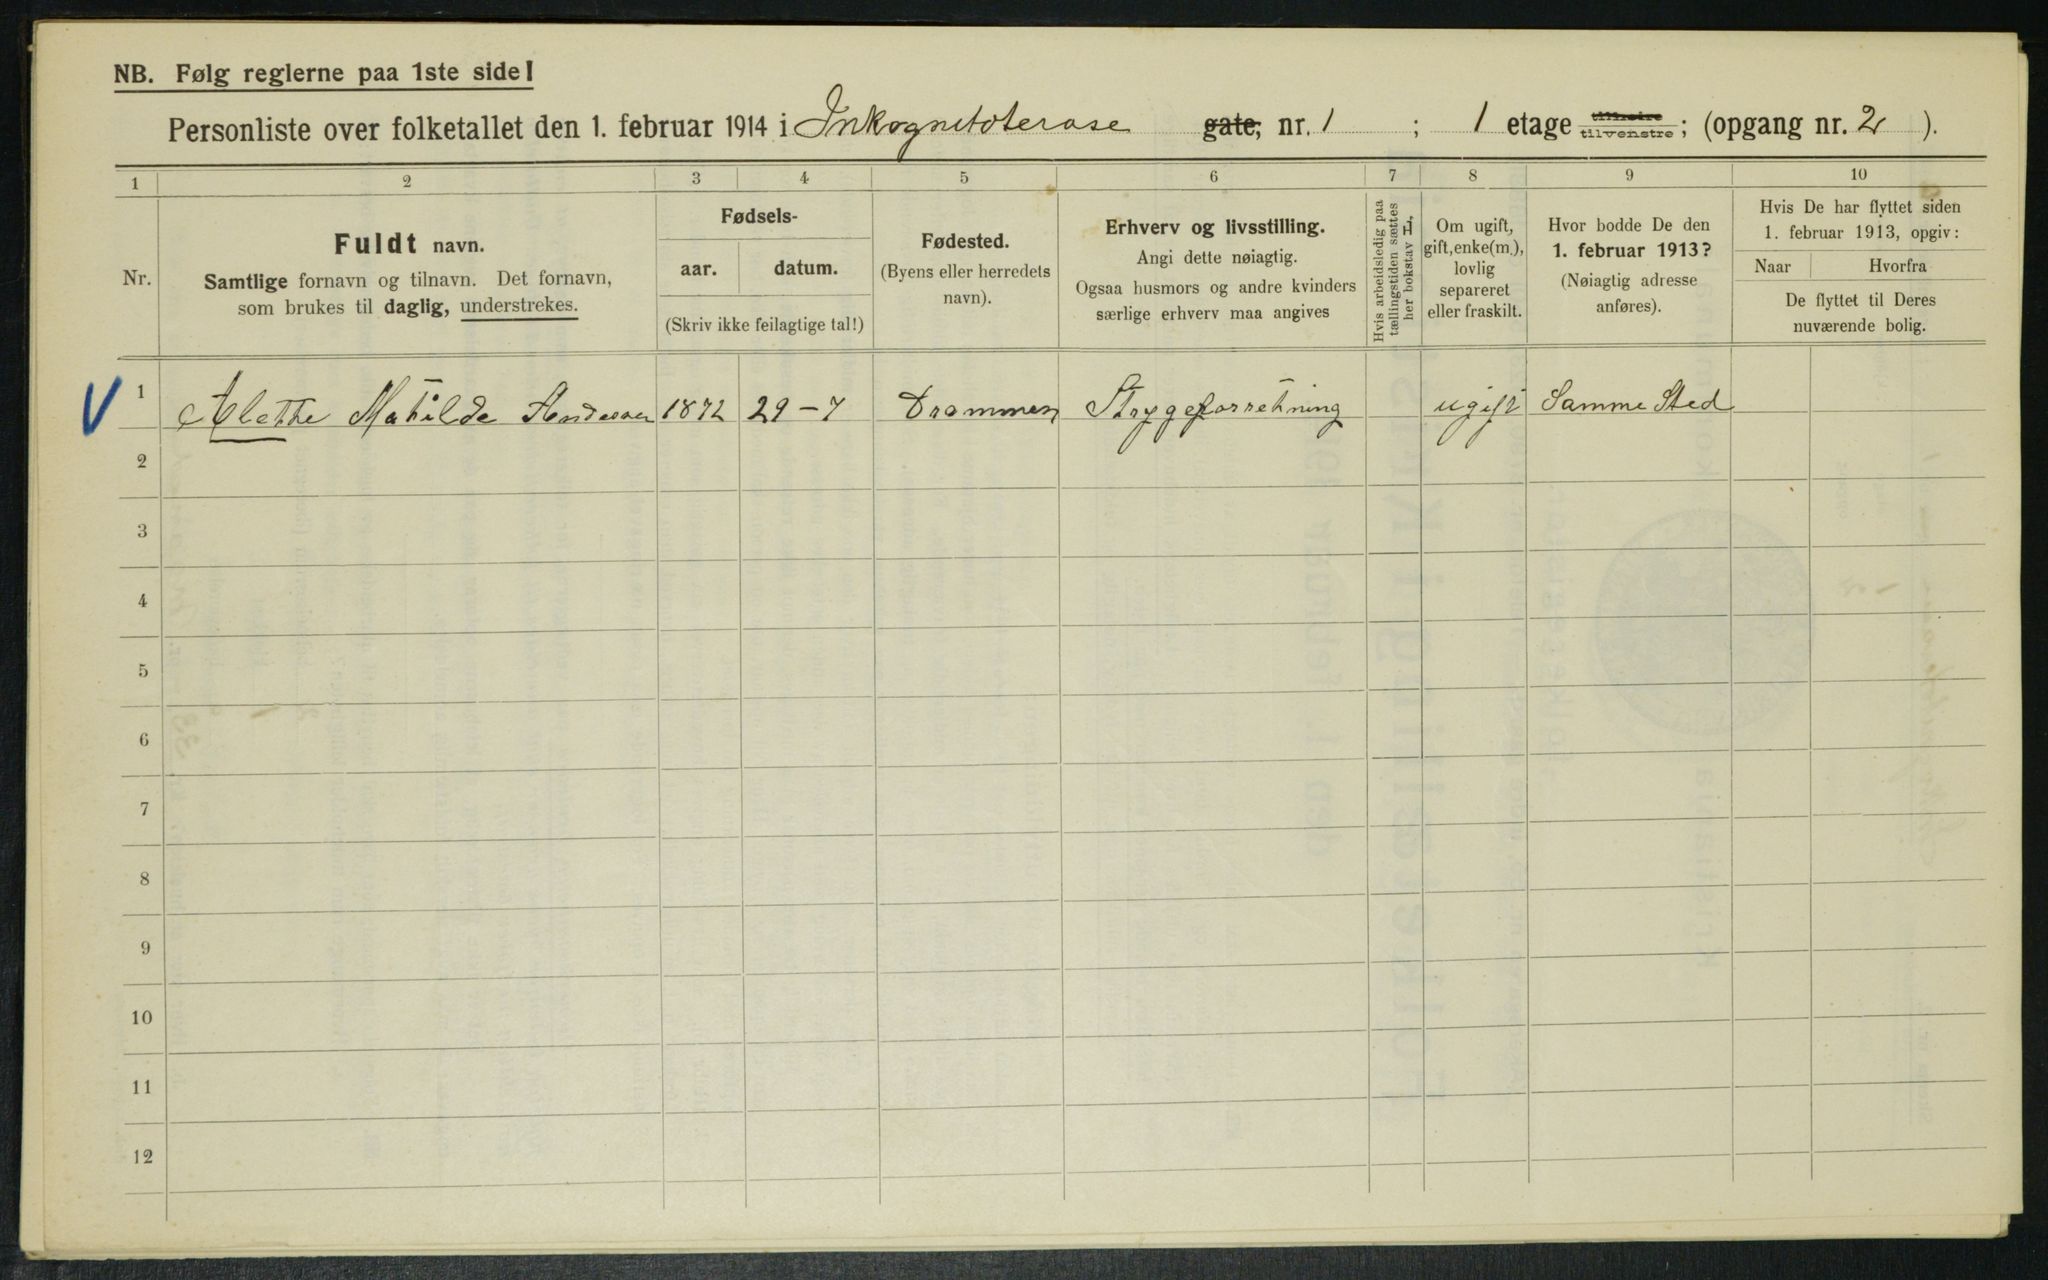 NB. Følg reglerne paa 1ste side!
Personliste over folketallet den 1. februar 1914 i Inkognitoterase gate, nr. 1 ; 1 etage tilhøire tilvenstre ; (opgang nr. 2 ).
1 2 3 4 5 6 7 8 9 10
Nr.
Fuldt navn.
Samtlige fornavn og tilnavn. Det fornavn,
som brukes til daglig, understrekes.
Fødsels-
aar. datum.
(Skriv ikke feilagtige tal!)
Fødested.
(Byens eller herredets
navn).
Erhverv og livsstilling.
Angi dette nøiagtig.
Ogsaa husmors og andre kvinders
særlige erhverv maa angives
Hvis arbeidsledig paa
tællingstiden sættes
her bokstav L.
Om ugift,
gift, enke(m.),
lovlig
separeret
eller fraskilt.
Hvor bodde De den
1. februar 1913?
(Nøiagtig adresse
anføres).
Hvis De har flyttet siden
1. februar 1913, opgiv:
Naar Hvorfra
De flyttet til Deres
nuværende bolig.
V 1 Alethe Mathilde Andersen 1872 29-7 Drammen Strygeforretning ugift Samme Sted
2
3
4
5
6
7
8
9
10
11
12